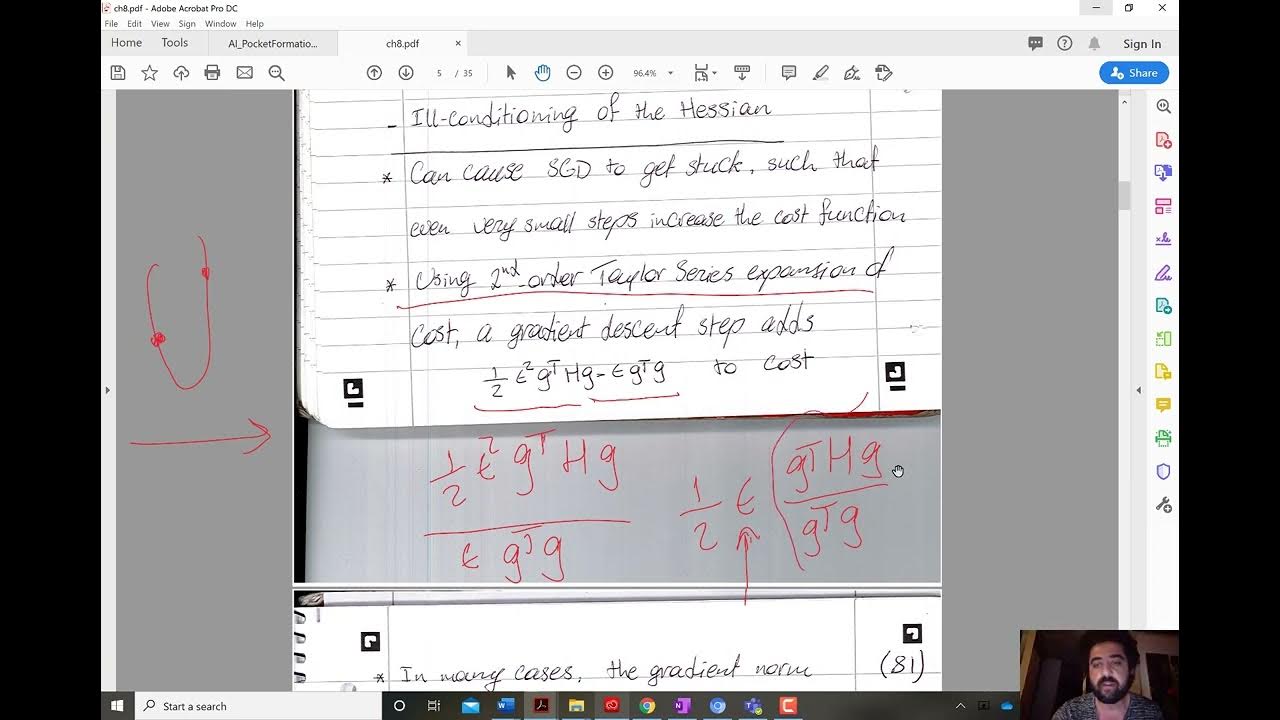 ch8.pdf - Adobe Acrobat Pro DC
File Edit View Sign Window Help
Home Tools AI_PocketFormatio... ch8.pdf × Sign In
5 / 35 96.4% Share
- Ill-conditioning of the Hessian
* Can cause SGD to get stuck, such that
even very small steps increase the cost function
* Using 2nd-order Taylor Series expansion of
cost, a gradient descent step adds
1/2 ε² gᵀHg - ε gᵀg to cost
1/2 ε² gᵀ H g / ε gᵀ g
1/2 ε gᵀHg / gᵀg
* In many cases, the gradient norm (81)
Type here to search